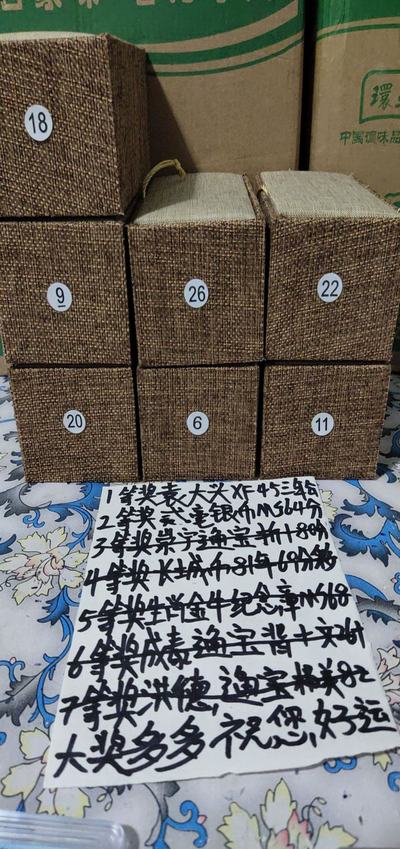 環
中国调味品
18
9
26
22
20
6
11
1等奖袁大头XF45三年
2等奖 银币MS64分
3等奖崇宁通宝 80分
4等奖长城币81年69分
5等奖生肖金牛纪念章MS68
6等奖咸泰通宝背十文
7等奖洪德通宝 82
大奖多多祝您好运